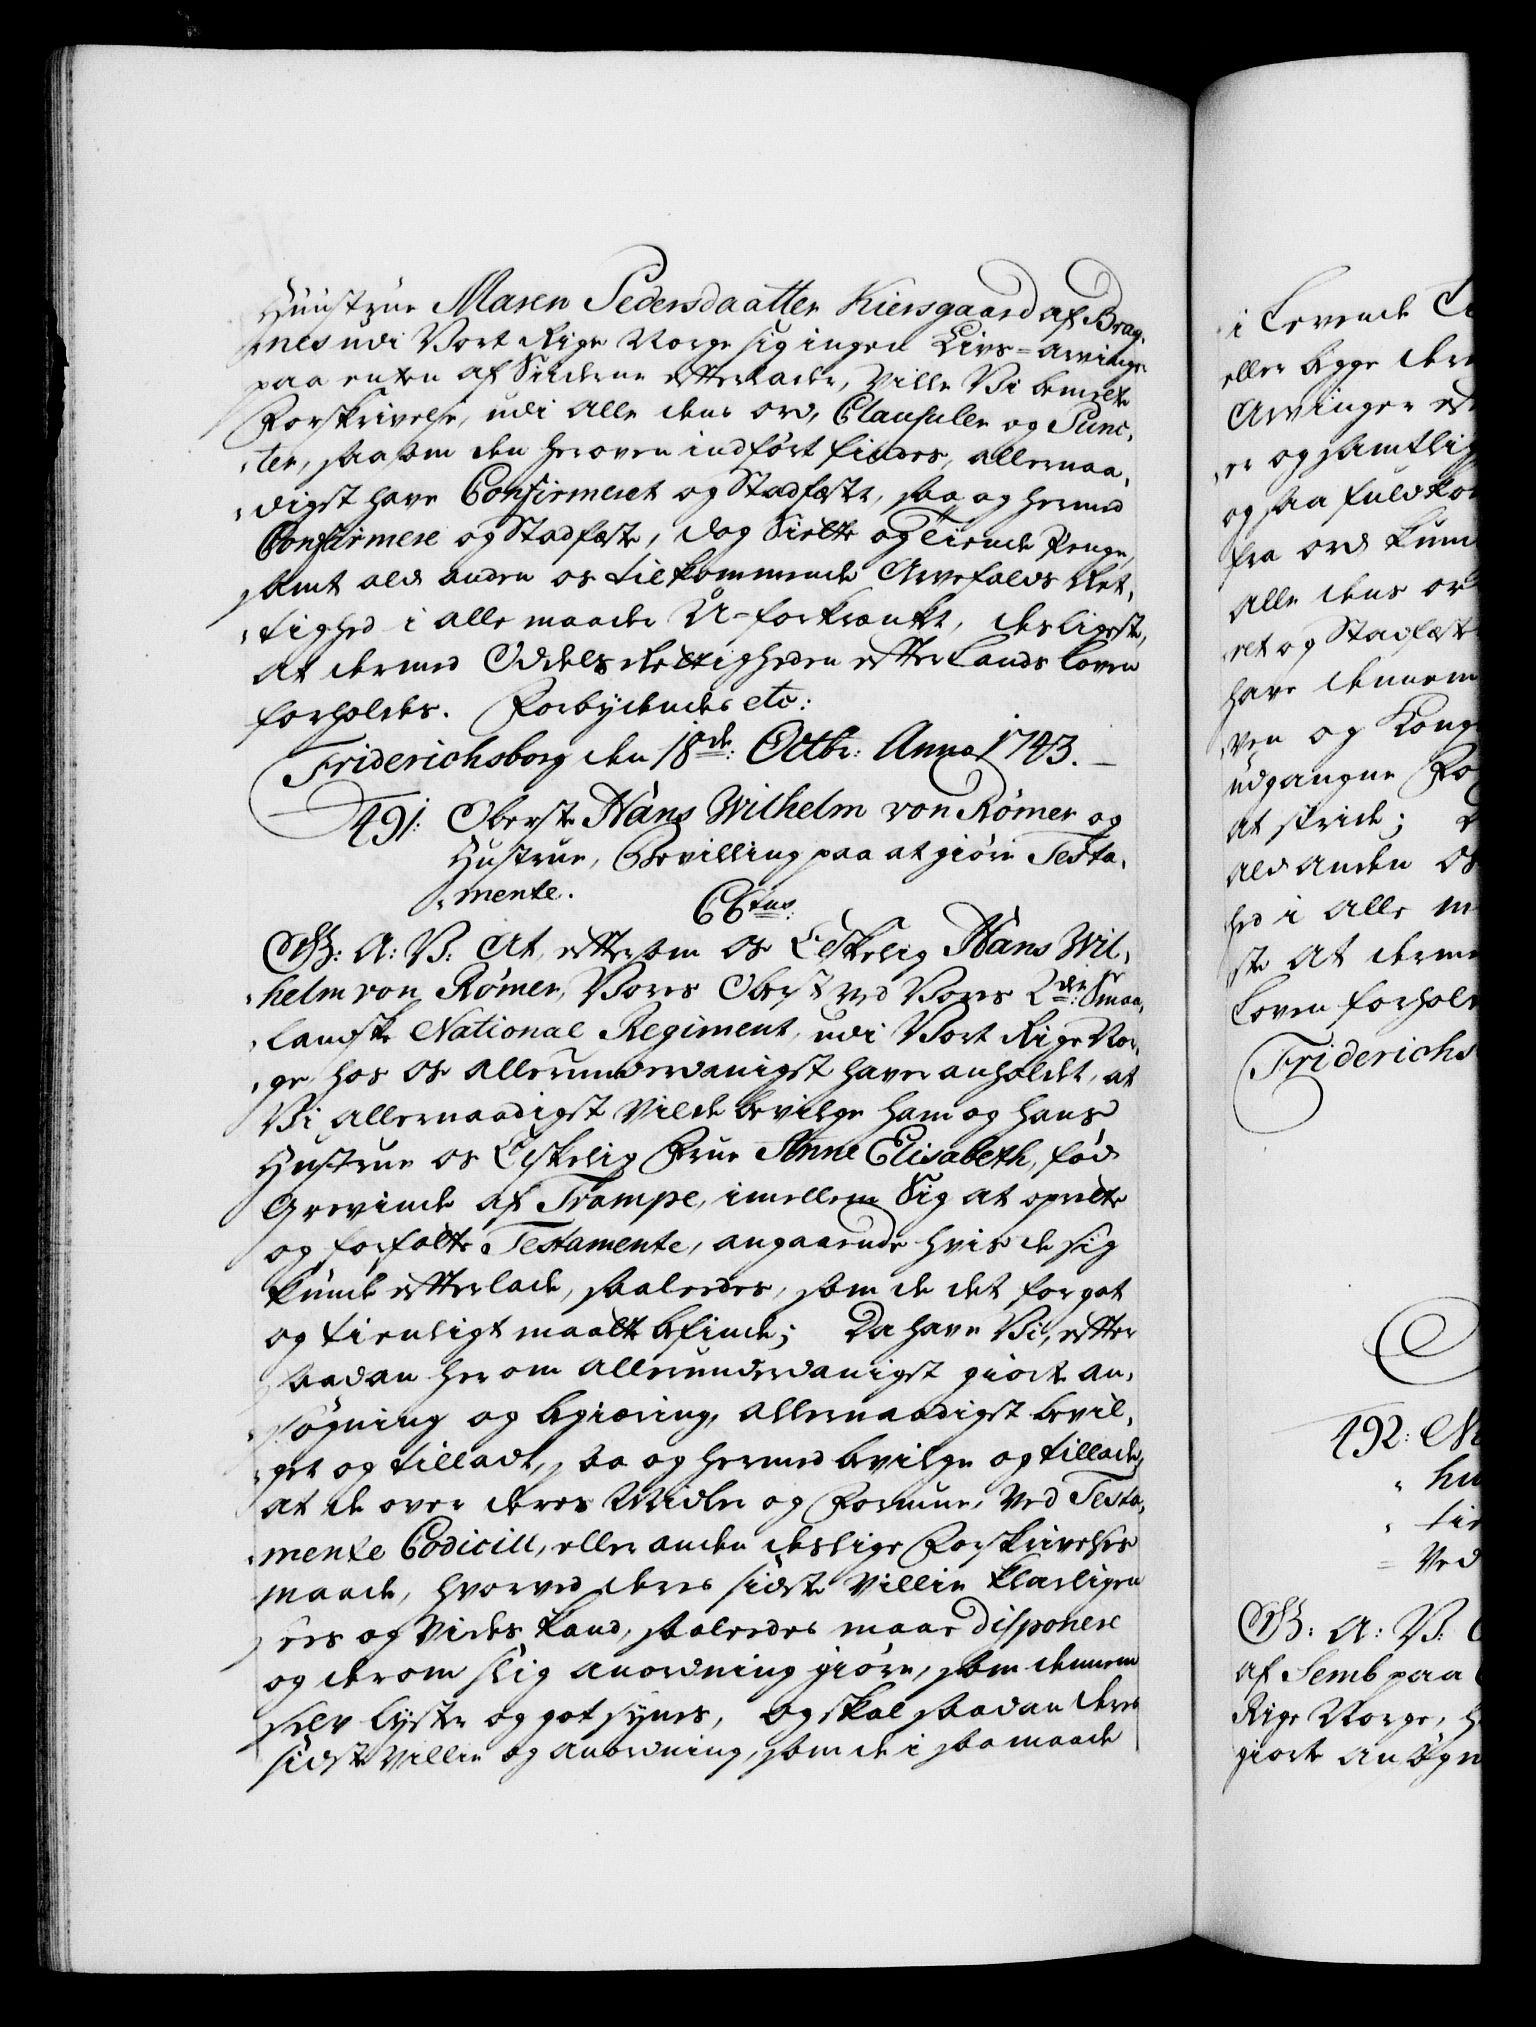 Huustrue Maren Pedersdaatter Kiersgaard af Brag,
„nes udi Vort Rige Norge sig ingen Livs-arvinger
paa enten af Siderne efterlader, Ville Vi bemelte
Forskrivelse, udi alle dens ord, Clausuler og Punc,
„ter, saasom den heroven indført findes, allernaa,
„digst have Confirmeret og Stadfæste, saa og hermed
Confirmere og Stadfæste, dog Siette og Tiende Penge,
samt ald anden os tilkommende Arvefalds Ret,
„tighed i alle maader U-forkrænkt, desligeste,
at dermed Odels Rettigheden efter Lands Loven
forholdes. Forbydendes etc:
Friderichsborg den 18de: Octbr: Anno 1743. —
491: Oberste Hans Wilhelm von Rømer og
Hustrue, Bevilling paa at giøre Testa,
„mente.
CCtus:
G: A: V: At, eftersom os Elskelig Hans Wil,
„helm von Rømer, Vores Oberst ved Vores 2det Smaa,
„landske National Regiment, udi Vort Rige Nor,
„ge, hos os allerunderdanigst haver anholdet, at
Vi allernaadigst vilde bevilge ham og hans
Hustrue os Elskelig Frue Anne Elisabeth, fød
Grevinde af Trampe, imellem Sig at oprette
og forfatte Testamente, angaaende hvis de sig
kunde efterlade, saaledes, som de det for got
og tienligt maatte befinde; Da have Vi, efter
saadan herom allerunderdanigst giorte an,
„søgning og begiæring, allernaadigst bevil,
„get og tilladt, saa og hermed bevilge og tillade,
at de over deres Midler og Formue, ved Testa,
„mente Codicill, eller anden deslige Forskrivelses
maade, hvorved deres sidste Villie klarligen
sees og vides kand, saaledes maae disponere
og derom slig anordning giøre, som dennem
selv lyster og got synes, og skal saadan deres
sidste Villie og anordning, som de i saa maade
i Levende
eller begge
Arvinger
er og samtlig
og saa fuldkom
fra ord
alle dens or
ret og Stadfæst
have dennem
ven og Kong
udgangne Fo
at stride;
ald anden os
hed i alle m
ste at derme
Loven forhol
Friderichs
492:
ved
G: A: V:
af Semb paa
Rige Norge, h
giorte ansøgn